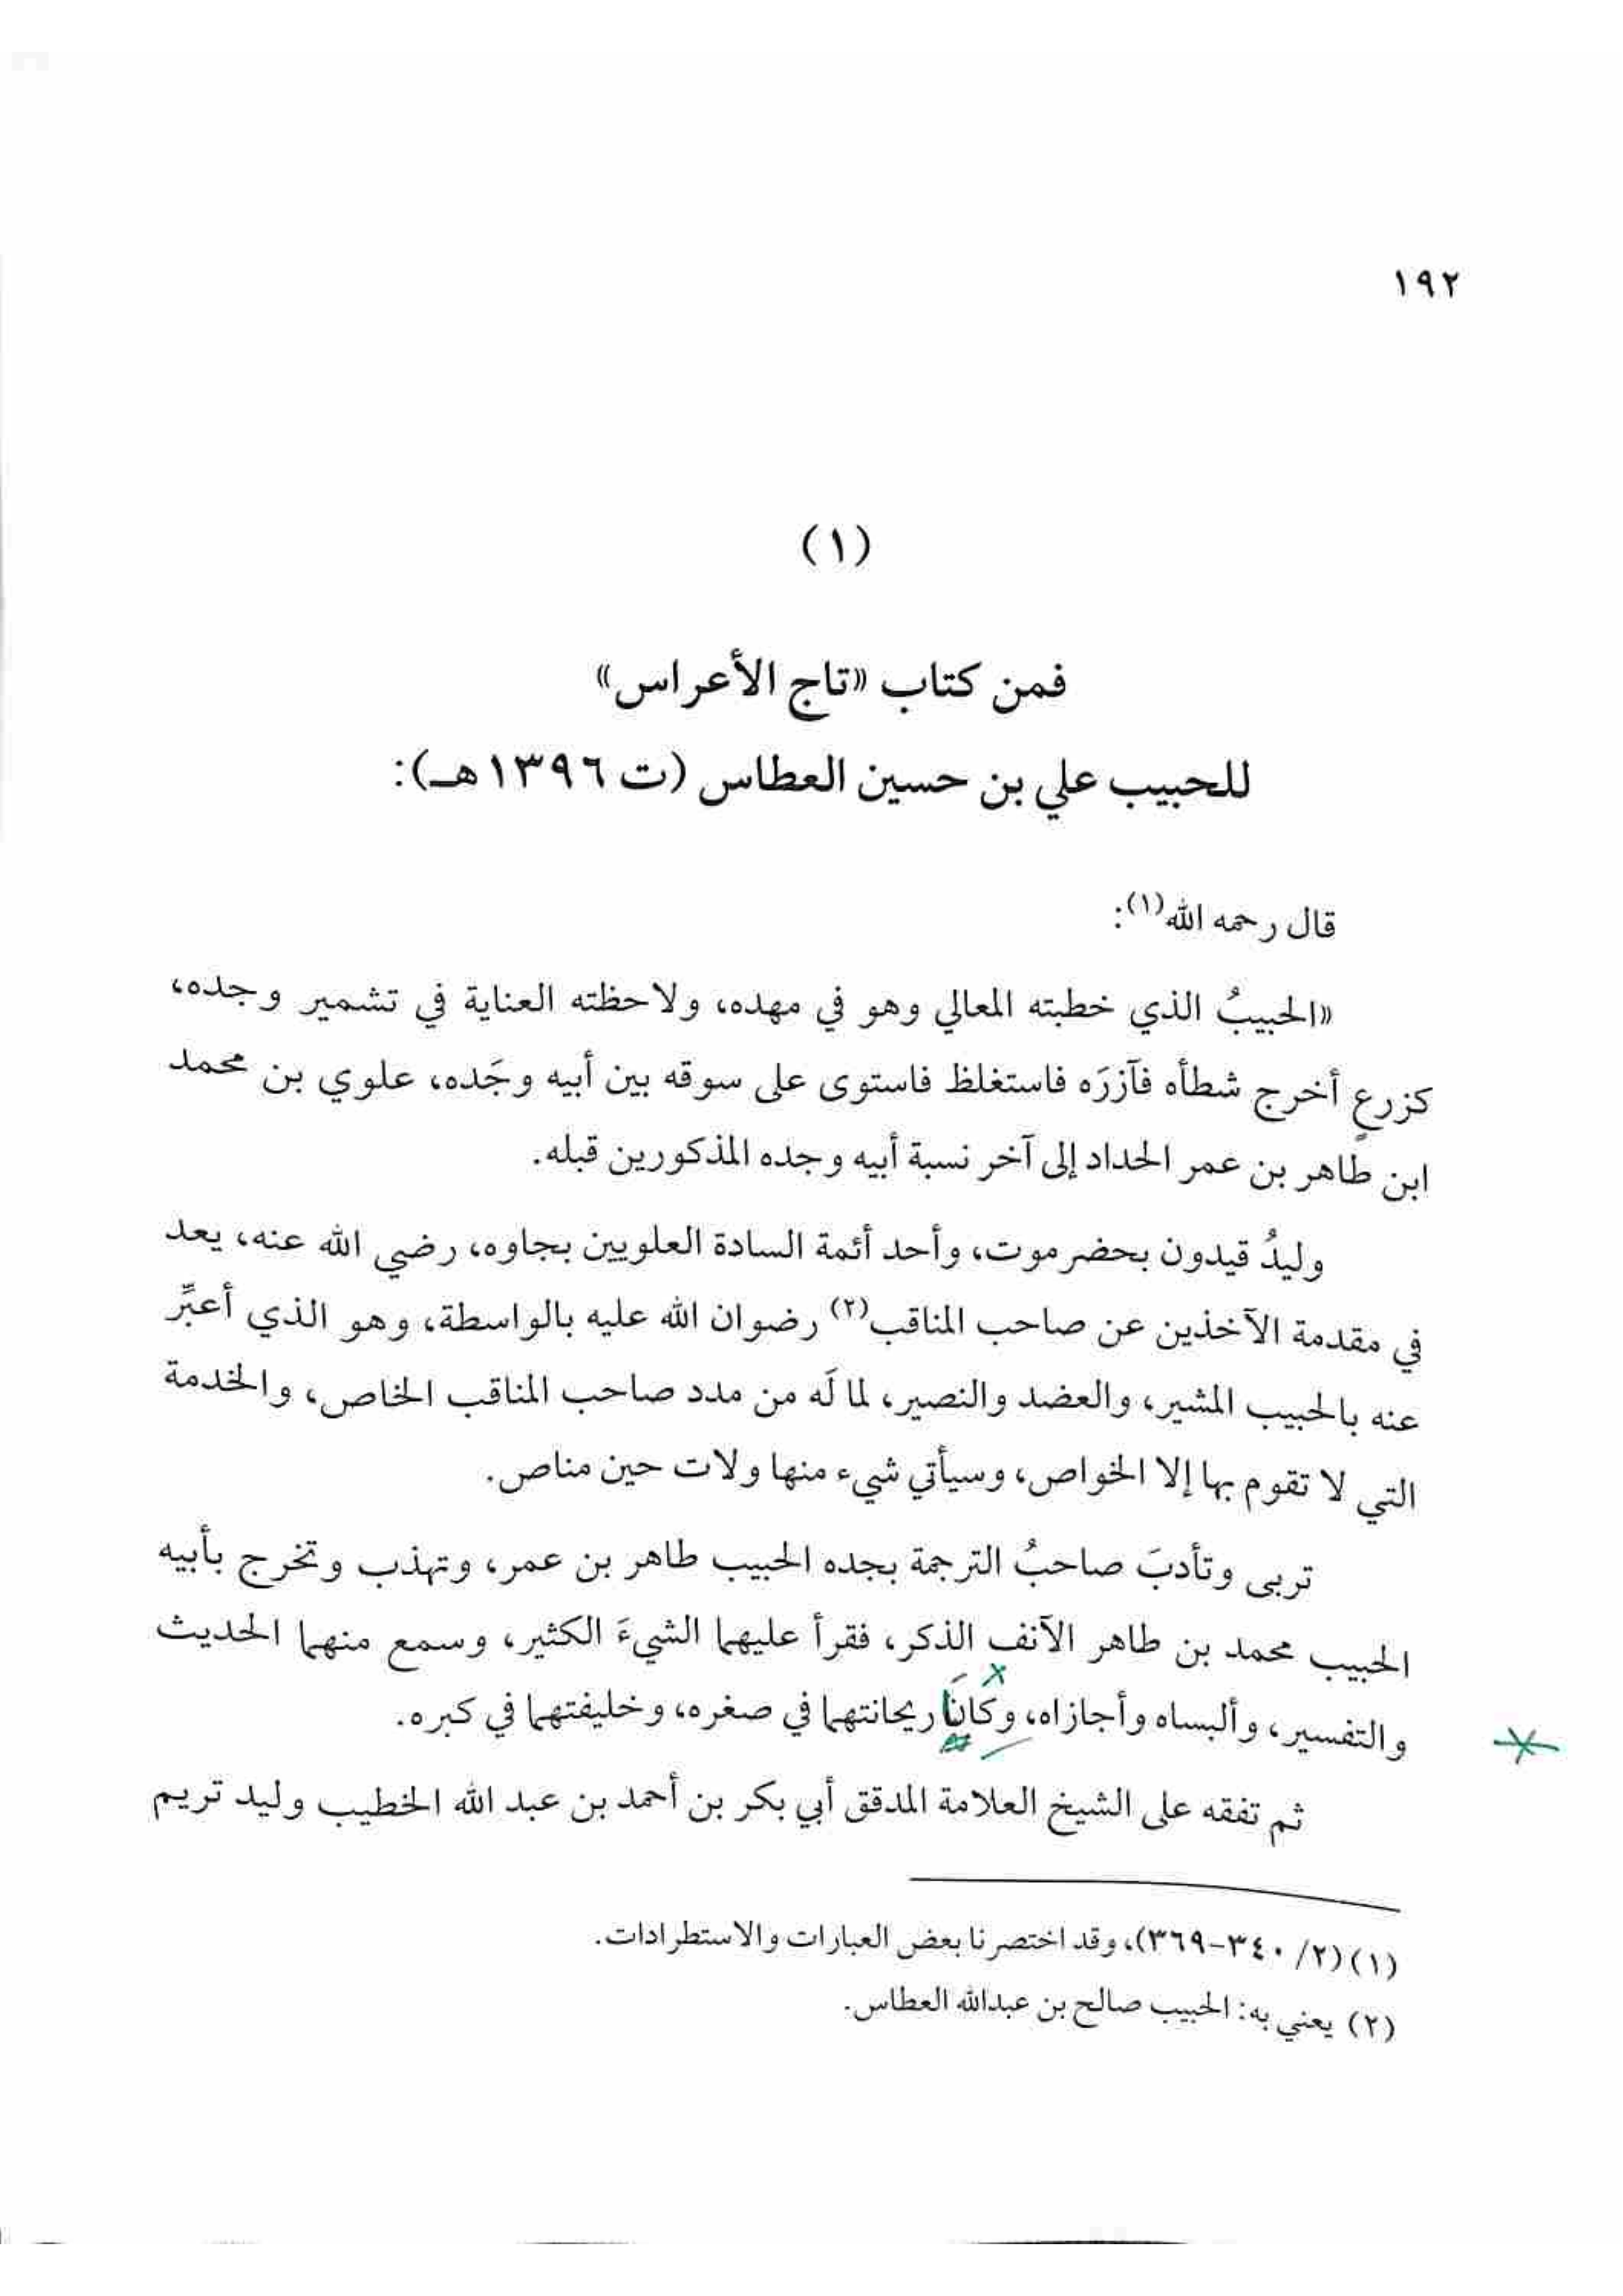 ١٩٢
(١)
فمن كتاب «تاج الأعراس»
للحبيب علي بن حسين العطاس (ت ١٣٩٦هـ):
قال رحمه الله(١):
«الحبيبُ الذي خطبته المعالي وهو في مهده، ولاحظته العناية في تشمير وجده،
كزرعٍ أخرج شطأه فآزرَه فاستغلظ فاستوى على سوقه بين أبيه وجَده، علوي بن محمد
ابن طاهر بن عمر الحداد إلى آخر نسبة أبيه وجده المذكورين قبله.
وليدُ قيدون بحضرموت، وأحد أئمة السادة العلويين بجاوه، رضي الله عنه، يعد
في مقدمة الآخذين عن صاحب المناقب(٢) رضوان الله عليه بالواسطة، وهو الذي أعبِّر
عنه بالحبيب المشير، والعضد والنصير، لما لَه من مدد صاحب المناقب الخاص، والخدمة
التي لا تقوم بها إلا الخواص، وسيأتي شيء منها ولات حين مناص.
تربى وتأدبَ صاحبُ الترجمة بجده الحبيب طاهر بن عمر، وتهذب وتخرج بأبيه
الحبيب محمد بن طاهر الآنف الذكر، فقرأ عليهما الشيءَ الكثير، وسمع منهما الحديث
والتفسير، وألبساه وأجازاه، وكانَا ريحانتهما في صغره، وخليفتهما في كبره.
ثم تفقه على الشيخ العلامة المدقق أبي بكر بن أحمد بن عبد الله الخطيب وليد تريم
(١) (٢/ ٣٤٠-٣٦٩)، وقد اختصرنا بعض العبارات والاستطرادات.
(٢) يعني به: الحبيب صالح بن عبدالله العطاس.